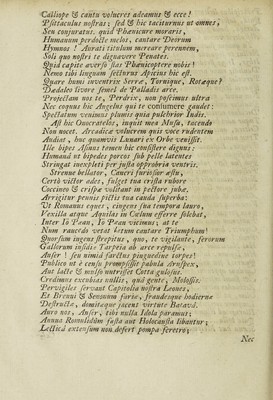 Calliope & cantu volucres adeamus & ecce!
Psittaculus nostras; sed & hic taciturnus ut omnes,
Seu conjuratur. quid Phœnicure moraris,
Humanum perdocte melos, cantare Deorum
Hymnos! Aurati titulum mereare perennem,
Soli quo nostri te dignavere Penates.
Quid capite averso flas Phœnicoptere nobis!
Nemo tibi linguam secturus Apicius hic est.
Quare humi inventrix Serræ, Tornique, Rotæque?
Dædaleo livore semel de Palladis arce.
Projectam nos te, Perdrix, non poscimus ultra
Nec coquus hic Angelus qui te contumere gaudet:
Spectatum venimus plumis quia pulchrior Indis.
Ast hic Onocrotalus, inquit mea Musa, tacendo
Non nocet. Arcadicæ volucrem quis voce rudentem
Audiat, huc quamvis Lunari ex Orbe venissit.
Ille bipes Asinus tamen hic consistere dignus:
Humand ut bipedes porcos sub pelle latentes
Stringat inexpleti per justa opprobria ventris.
Strenue bellator, Cancri furiosior æstu,
Certò victor ades, fulget tua crista rubore
Coccineo & crispæ volitant in pectore jubæ.
Arrigitur pennis pictis tua cauda superba:
Ut Romanus eques, cingens sua tempora lauro,
Vexilla atque Aquilas in Cœlum efferre solebat,
Inter Io Pæan, Io Pæan vicimus; at te
Num raucedo vetat lætum cantare Triumphum!
Quorsum ingens strepitus, quo, te vigilante, ferorum
Gallorum insidiæ Tarpeia ab arce repulsæ,
Anser! seu nimiâ farctus pinguedine torpes!
Publico ut è censu prompsissit pabula Aruspex,
Aut lacte & mulso nutrisset Cotta gulosus.
Credimus excubias nullis, quà gente, Molossis.
Pervigiles servant Capitolia nostra Leones,
Et Brenni & Senonum furiæ, fraudesque hodierna
Destructæ, domitæque jacent virtute Batavâ.
Auro nos, Anser, tibi nulla Idola paramus;
Annua Romulidûm fasto aut Holocausta libantur;
Lecticâ extensum non defert pompa feretro;
Nec